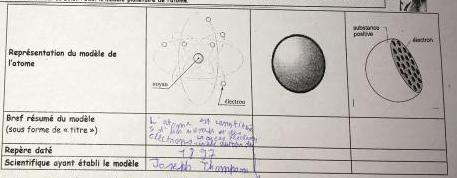 substance
positive
électron
Représentation du modèle de
l'atome
noyau
électron
Bref résumé du modèle
(sous forme de « titre »)
L'atome est constitué
Repère daté
1897
Scientifique ayant établi le modèle
Joseph Thompson